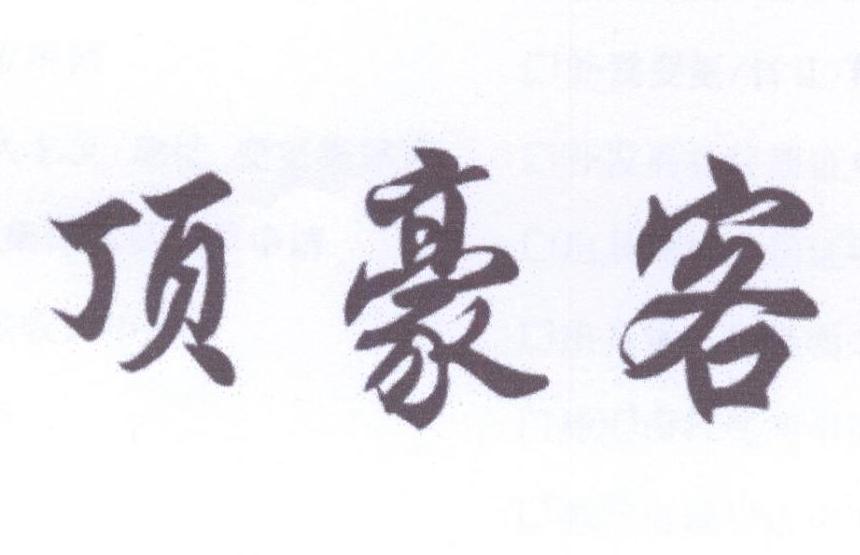 顶豪客